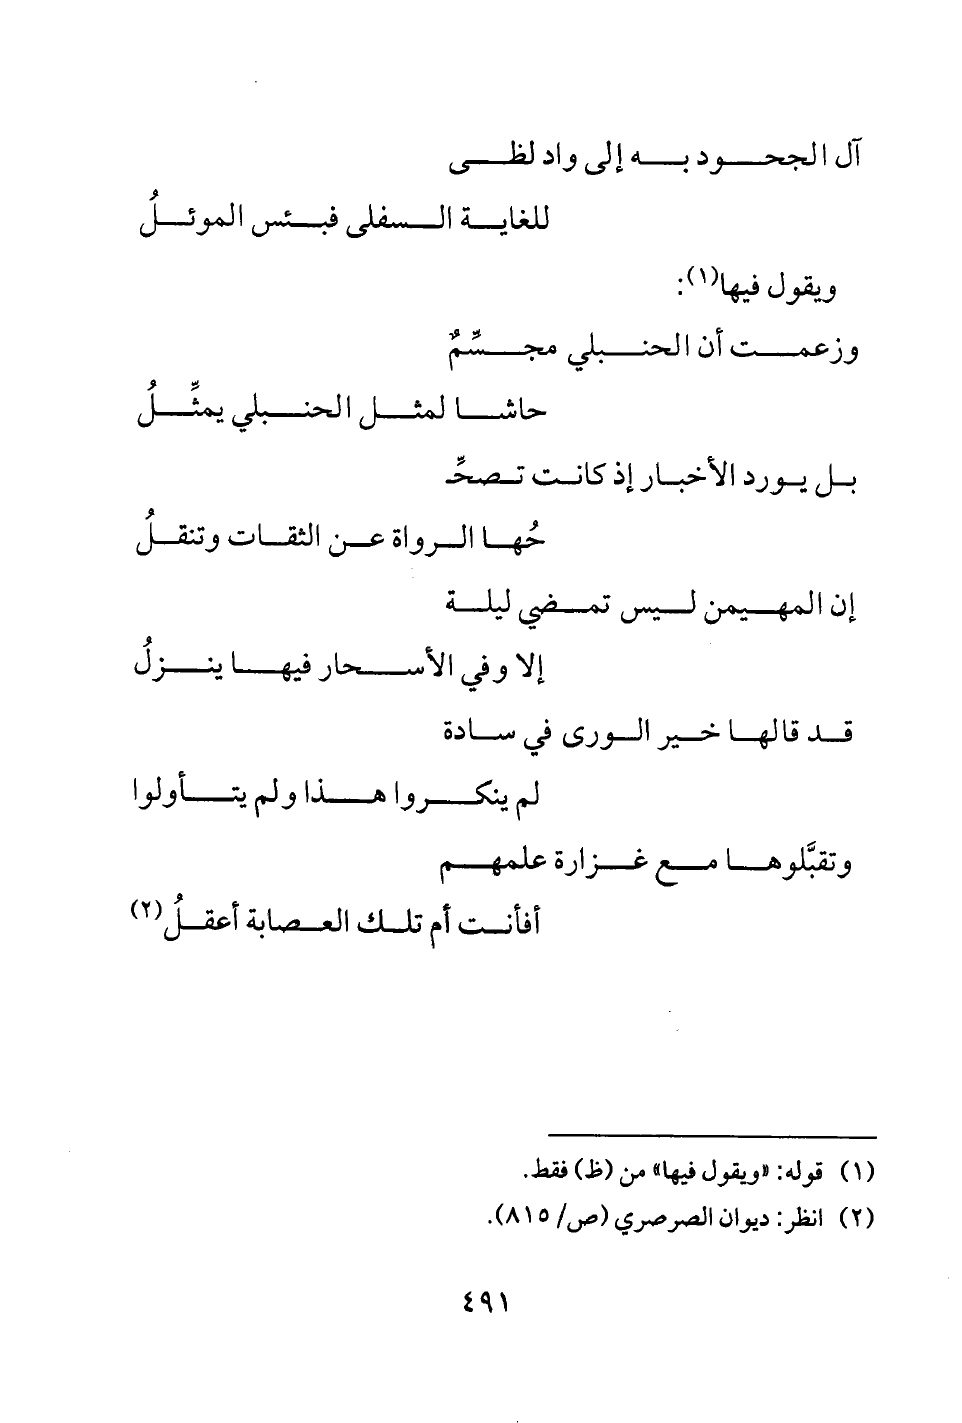 آل الجحود به إلى واد لظى
للغاية السفلى فبئس الموئلُ
ويقول فيها(١):
وزعمت أن الحنبلي مجسِّمٌ
حاشا لمثل الحنبلي يمثِّلُ
بل يورد الأخبار إذ كانت تصحِّـ
ـحُها الرواة عن الثقات وتنقلُ
إن المهيمن ليس تمضي ليلة
إلا وفي الأسحار فيها ينزلُ
قد قالها خير الورى في سادة
لم ينكروا هذا ولم يتأولوا
وتقبَّلوها مع غزارة علمهم
أفأنت أم تلك العصابة أعقلُ(٢)
(١) قوله: «ويقول فيها» من (ظ) فقط.
(٢) انظر: ديوان الصرصري (ص/ ٨١٥).
٤٩١